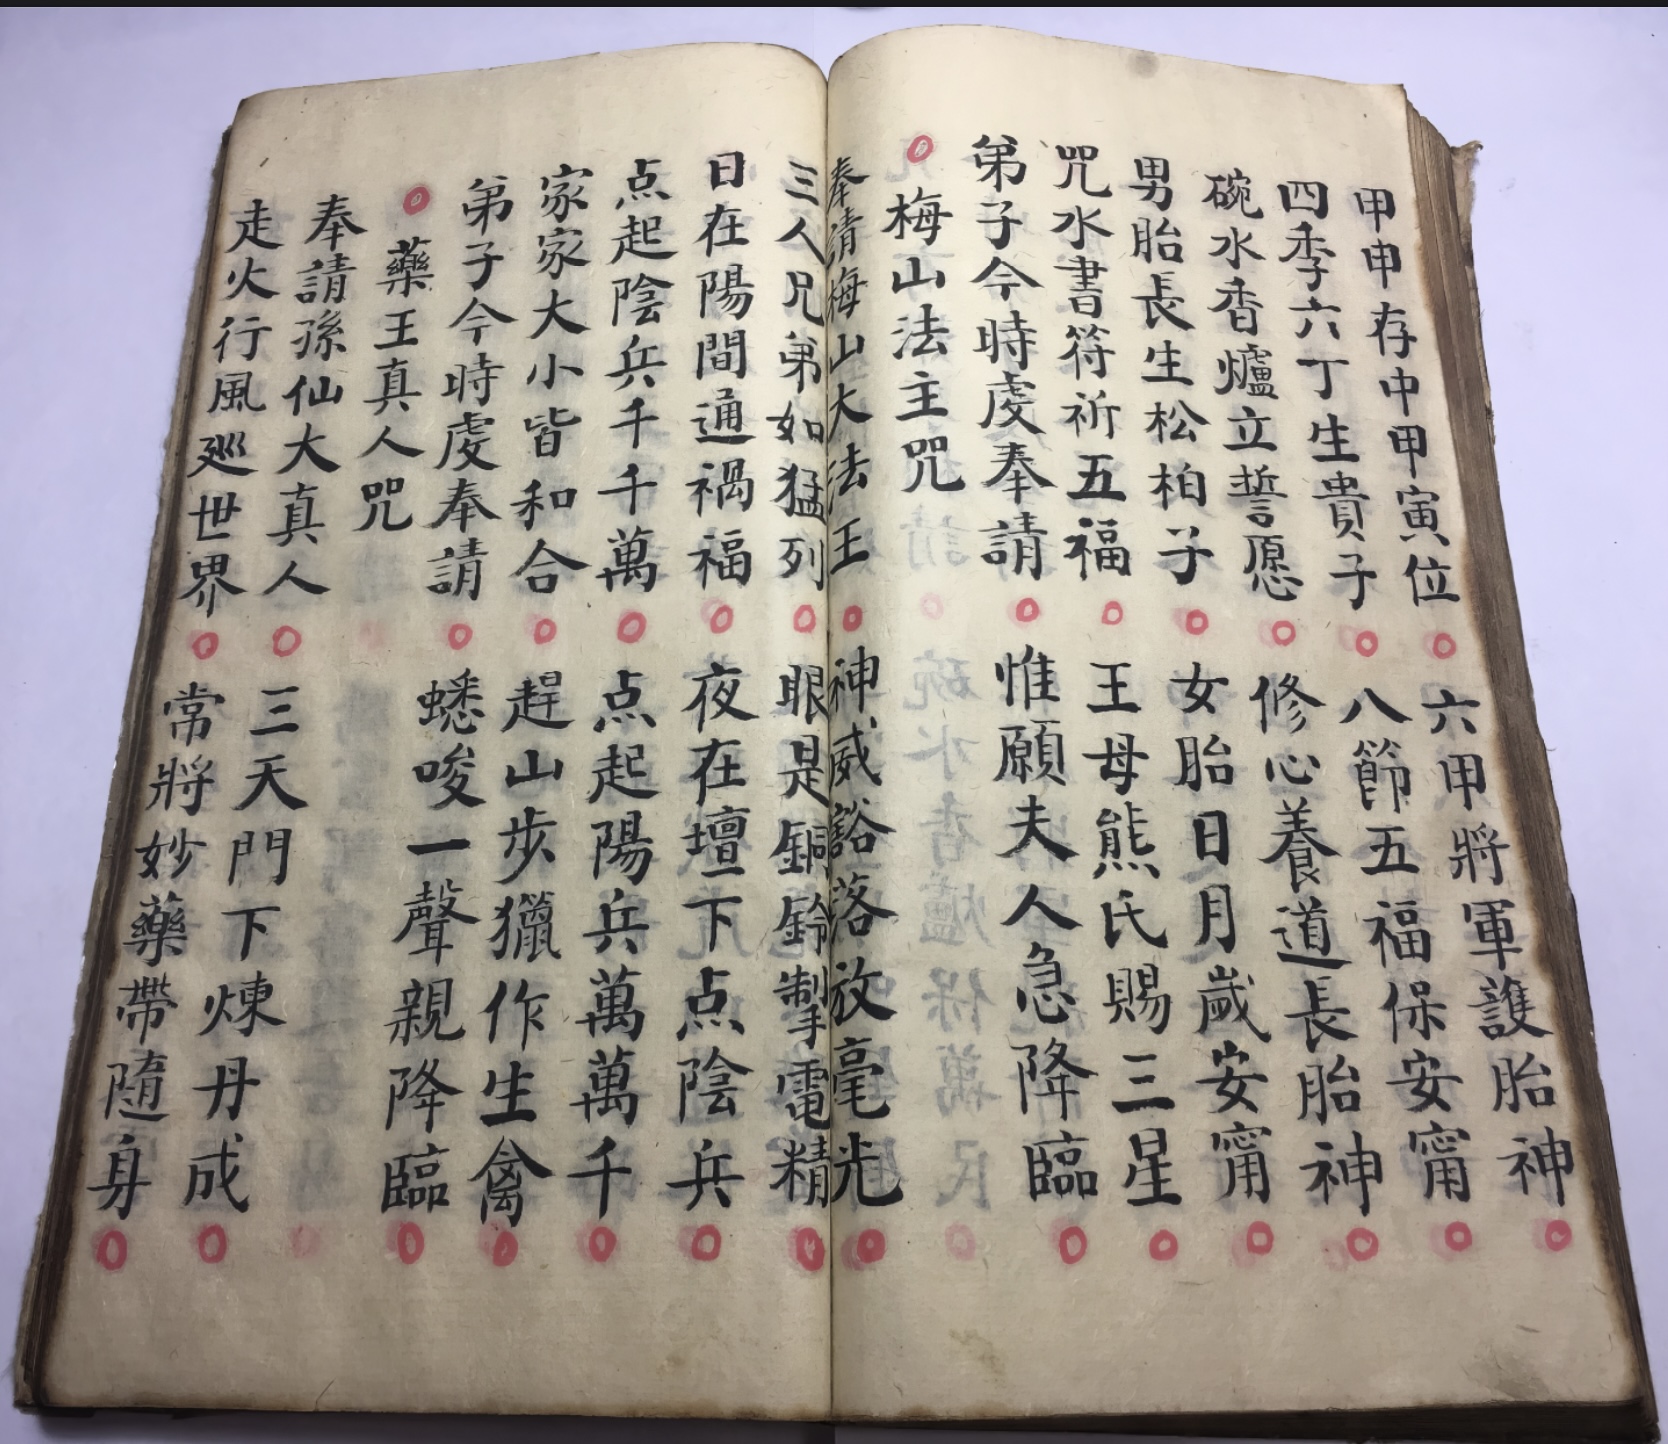 甲申存中甲寅位○六甲將軍護胎神○
四季六丁生貴子○八節五福保安甯○
碗水香爐立誓愿○修心養道長胎神○
男胎長生松柏子○女胎日月歲安甯○
咒水書符祈五福○王母熊氏賜三星○
弟子今時虔奉請○惟願夫人急降臨○
○梅山法主咒
奉請梅山大法王○神威豁落放毫光○
三人兄弟如猛列○眼是銅鈴掣電精○
日在陽間通禍福○夜在壇下点陰兵○
点起陰兵千千萬○点起陽兵萬萬千○
家家大小皆和合○趕山步獵作生禽○
弟子今時虔奉請○蟋唆一聲親降臨○
○藥王真人咒
奉請孫仙大真人○三天門下煉丹成○
走火行風巡世界○常將妙藥帶隨身○